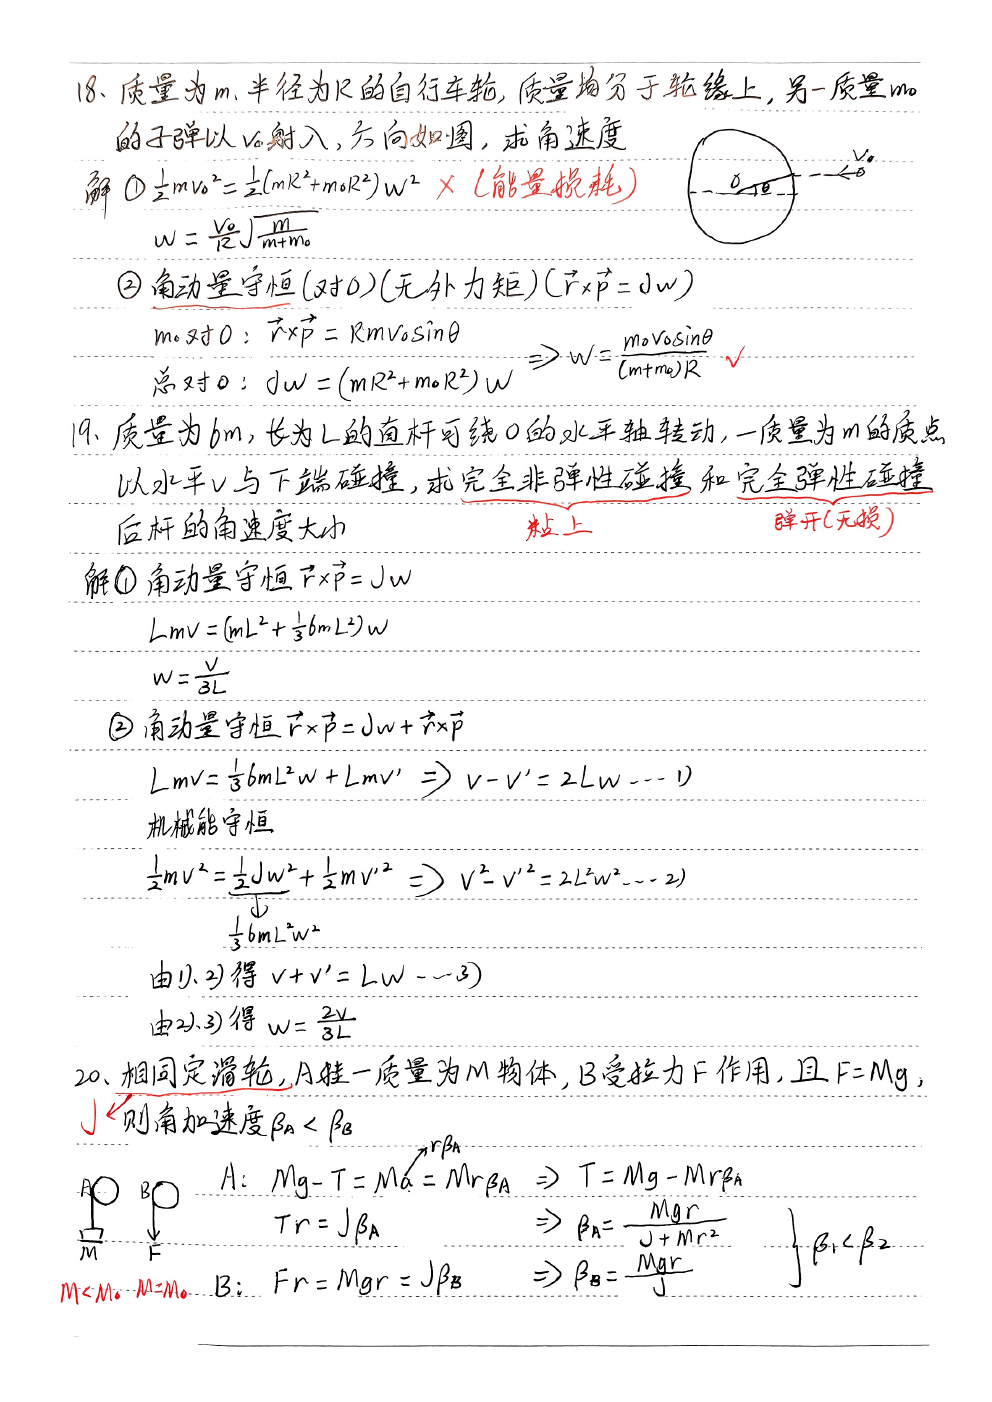 18、质量为m、半径为R的自行车轮,质量均分于轮缘上,另一质量m₀
的子弹以v₀射入,方向如图,求角速度
解 ① ½mv₀²=½(mR²+m₀R²)w² × (能量损耗)
w = v₀/R √(m/(m+m₀))
O θ v₀
② 角动量守恒(对O)(无外力矩)(r⃗×p⃗=Jw)
m₀对O: r⃗×p⃗ = Rmv₀sinθ
总对O: Jw = (mR²+m₀R²)w
=> w = m₀v₀sinθ/(m+m₀)R ✓
19、质量为6m,长为L的直杆可绕O的水平轴转动,一质量为m的质点
以水平v与下端碰撞,求完全非弹性碰撞和完全弹性碰撞
后杆的角速度大小 粘上 弹开(无损)
解① 角动量守恒 r⃗×p⃗=Jw
Lmv=(mL²+⅓6mL²)w
w = v/3L
② 角动量守恒 r⃗×p⃗=Jw+r⃗×p⃗
Lmv=⅓6mL²w+Lmv' => v-v'=2Lw ---1)
机械能守恒
½mv²=½Jw²+½mv'² => v²-v'²=2L²w² ---2)
⅓6mL²w²
由1)、2)得 v+v'=Lw ---3)
由2)、3)得 w = 2v/3L
20、相同定滑轮,A挂一质量为M物体,B受拉力F作用,且F=Mg,
J 则角加速度βA < βB
rβA
A: Mg-T=Ma=MrβA => T=Mg-MrβA
Tr=JβA => βA = Mgr/(J+Mr²)
β₁<β₂
B: Fr=Mgr=JβB => βB = Mgr/J
A B
M F
M<M₀ M=M₀